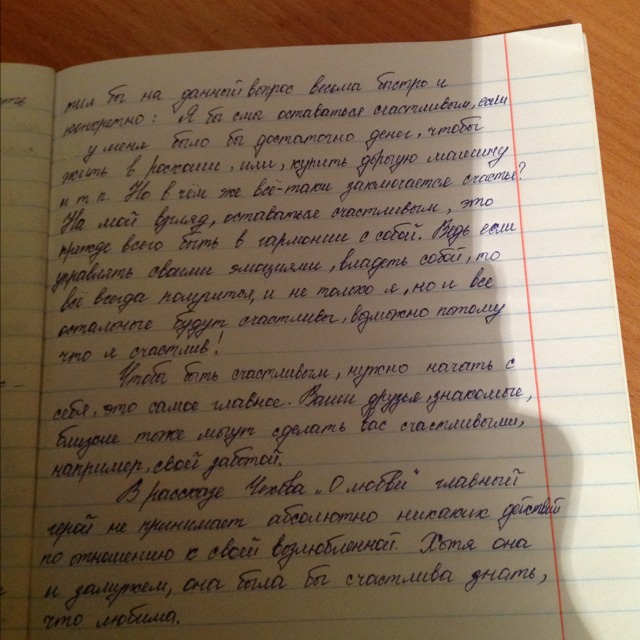 тил бы на данный вопрос весьма быстро и
конкретно: Я бы смог оставаться счастливым, если
у меня было бы достаточно денег, чтобы
жить в роскоши, или, купить дорогую машину
и т.п. Но в чём же всё-таки заключается счастье?
На мой взгляд, оставаться счастливым, это
прежде всего быть в гармонии с собой. Ведь если
управлять своими эмоциями, владеть собой, то
всё всегда получится, и не только я, но и все
остальные будут счастливы, возможно потому
что я счастлив!
Чтобы быть счастливым, нужно начать с
себя, это самое главное. Ваши друзья, знакомые,
близкие тоже могут сделать вас счастливыми,
например, своей заботой.
В рассказе Чехова „О любви" главный
герой не принимает абсолютно никаких действий
по отношению к своей возлюбленной. Хотя она
и замужем, она была бы счастлива знать,
что любима.